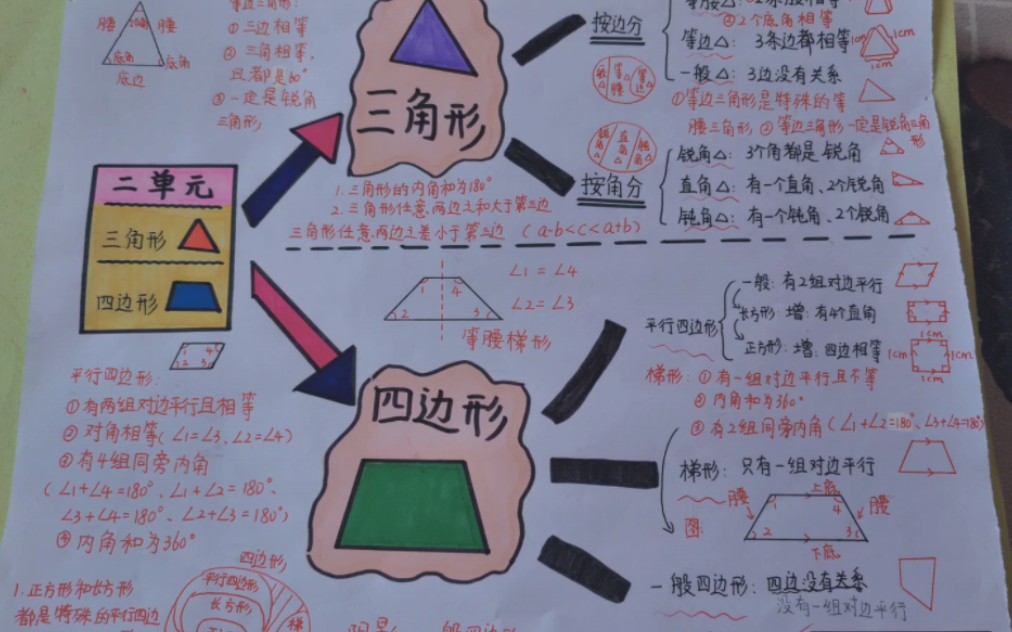 等边三角形:
①三边相等
②三角相等,
且都是60°
③一定是锐角
三角形
腰
腰
底角
底角
底边
三角形
按边分
②2个底角相等
等边△: 3条边都相等
1cm
1cm
1cm
一般△: 3边没有关系
①等边三角形是特殊的等
腰三角形, ②等边三角形一定是锐角三角
形
按角分
锐角△: 3个角都是锐角
直角△: 有一个直角、2个锐角
钝角△: 有一个钝角、2个锐角
1.三角形的内角和为180°
2.三角形任意两边之和大于第三边
三角形任意两边之差小于第三边 (a-b<c<a+b)
二单元
三角形
四边形
1 4
2 3
∠1=∠4
∠2=∠3
等腰梯形
1 4
2 3
平行四边形:
①有两组对边平行且相等
②对角相等(∠1=∠3、∠2=∠4)
③有4组同旁内角
(∠1+∠4=180°、∠1+∠2=180°、
∠3+∠4=180°、∠2+∠3=180°)
④内角和为360°
四边形
平行四边形
一般: 有2组对边平行
长方形: 增: 有4个直角
正方形: 增: 四边相等
1cm
1cm
1cm
1cm
梯形: ①有一组对边平行且不等
②内角和为360°
③有2组同旁内角(∠1+∠2=180°、∠3+∠4=180°)
梯形: 只有一组对边平行
图:
腰
上底
腰
1 4
2 3
下底
一般四边形: 四边没有关系
没有一组对边平行
1.正方形和长方形
都是特殊的平行四边
四边形
平行四边形
长方形
梯
一般四边形